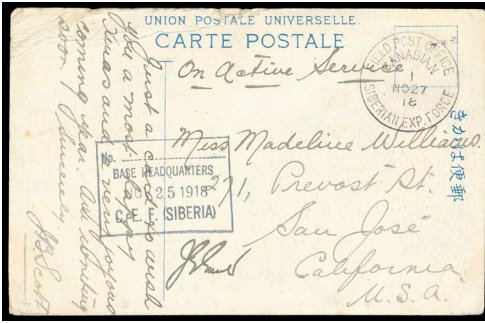 UNION POSTALE UNIVERSELLE.
CARTE POSTALE
On Active Service
FIELD POST OFFICE
CANADIAN
1
NO 27
18
SIBERIAN EXP. FORCE
きがは便郵
Miss Madeline Williams.
271, Prevost St.
San José
California,
U.S.A.
No.
BASE HEADQUARTERS
25 1918
C. E. F. (SIBERIA)
Just a card to wish
you a most happy
Xmas and a very joyous
coming year. Am writing
soon. Sincerely,
Scott